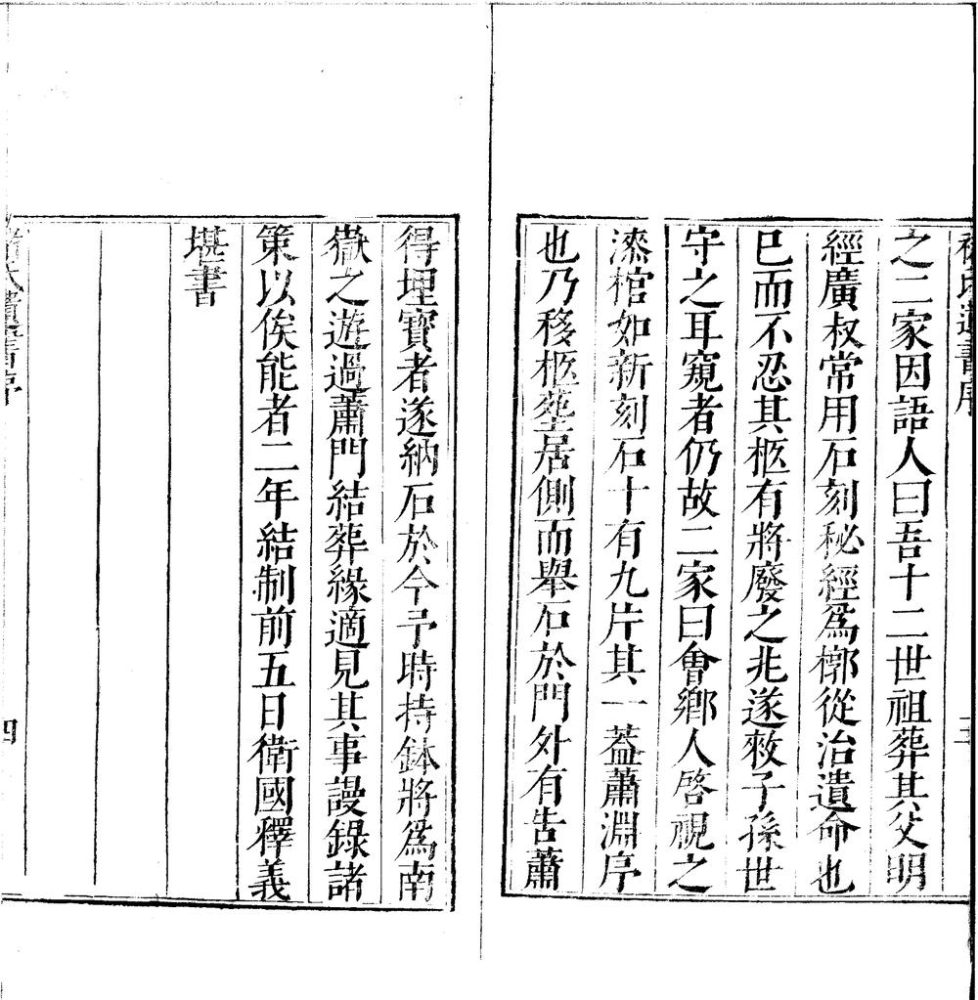 褚氏遺書序
三
之二家因語人曰吾十二世祖葬其父明
經廣叔常用石刻秘經爲槨從治遺命也
已而不忍其柩有將廢之兆遂敕子孫世
守之耳窺者仍故二家曰會鄉人啓視之
漆棺如新刻石十有九片其一葢蕭淵序
也乃移柩塟居側而舉石於門外有告蕭
得埋寶者遂納石於今予時持鉢將爲南
嶽之遊過蕭門結葬緣適見其事謾錄諸
策以俟能者二年結制前五日衛國釋義
堪書
褚氏遺書序
四